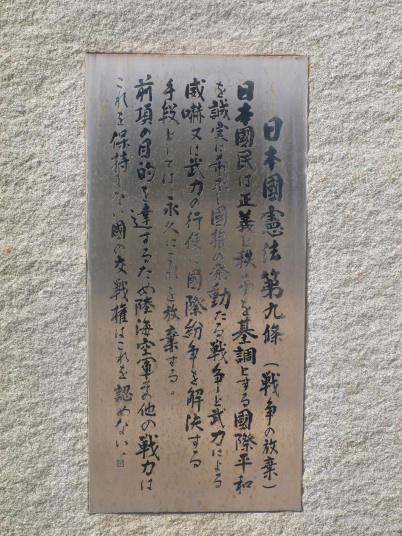 日本國憲法第九條（戦争の放棄）
日本國民は正義と秩序を基調とする國際平和
を誠実に希求し國権の発動たる戦争と武力による
威嚇又は武力の行使は國際紛争を解決する
手段としては永久にこれを放棄する。
前項の目的を達するため陸海空軍其他の戦力は
これを保持しない國の交戦権はこれを認めない。